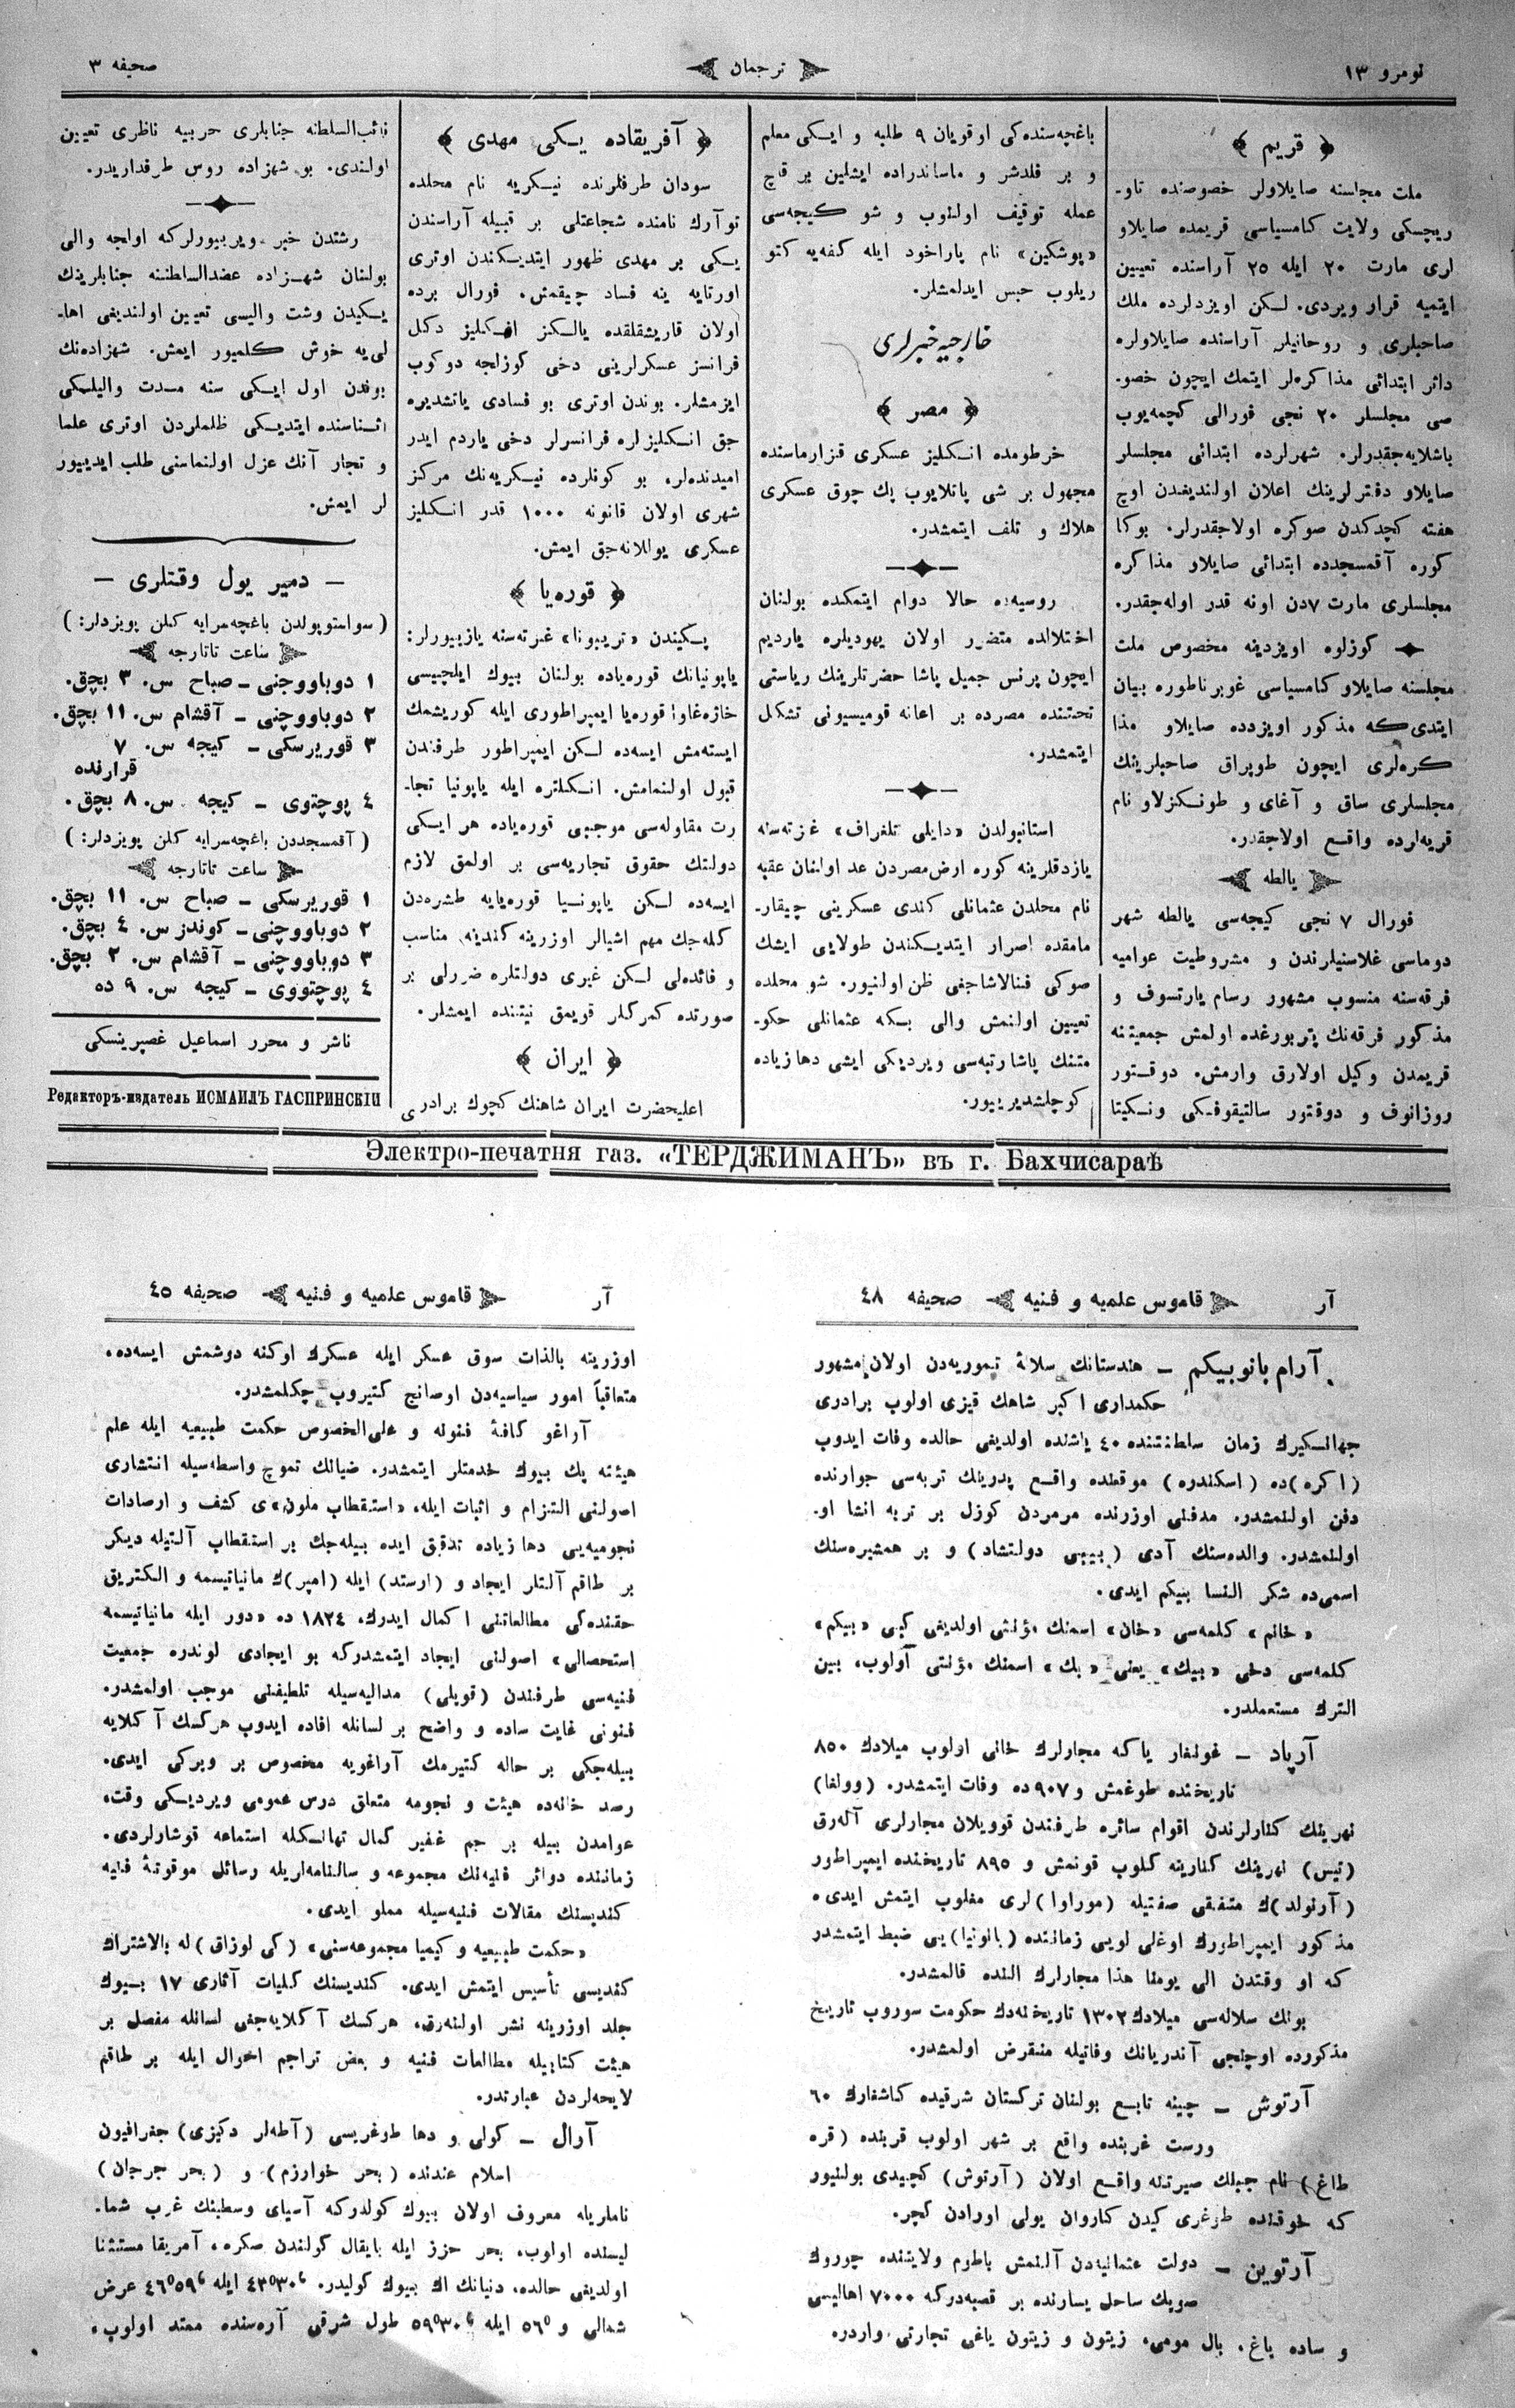 نومرو ١٣
ترجمان
صحیفه ٣
قریم
ملت مجلسنه صایلاولر خصوصنده تاو-
ریچسکی ولایت کامسیاسی قریمده صایلاو
لری مارت ٢٠ ایله ٢٥ آراسنده تعیین
ایتمیه قرار ویردی. لکن اویزدلرده ملك
صاحبلری و روحانیلر آراسنده صایلاولره
دائر ابتدائی مذاکره‌لر ایتمك ایچون خصو-
صی مجلسلر ٢٠ نجی فورالی کچمه‌یوب
باشلایه‌جقدرلر. شهرلرده ابتدائی مجلسلر
صایلاو دفترلرینك اعلان اولندیغندن اوچ
هفته کچدکدن صوکره اولاجقدرلر. بوکا
کوره آقمسجدده ابتدائی صایلاو مذاکره
مجلسلری مارت ٧دن اونه قدر اوله‌جقدر.
کوزلوه اویزدینه مخصوص ملت
مجلسنه صایلاو کامسیاسی غوبرناطوره بیان
ایتدی که مذکور اویزدده صایلاو مذا
کره‌لری ایچون طوپراق صاحبلرینك
مجلسلری ساق و آغای و طونکزلاو نام
قریه‌لرده واقع اولاجقدر.
یالطه
فورال ٧ نجی کیجه‌سی یالطه شهر
دوماسی غلاسنیلرندن و مشروطیت عوامیه
فرقه‌سنه منسوب مشهور رسام یارتسوف و
مذکور فرقه‌نك پتربورغده اولمش جمعیتنه
قریمدن وکیل اولارق وارمش. دوقتور
روزانوف و دوقتور سالتیقوفسکی ونیکیتا
باغچه‌سنده‌کی اوقویان ٩ طلبه و ایکی معلم
و بر فلدشر و ماساندراده ایشلین بر قاچ
عمله توقیف اولنوب و شو کیجه‌سی
«پوشکین» نام پاراخود ایله کفه‌یه کتو
ریلوب حبس ایدلمشلر.
خارجیه خبرلری
مصر
خرطومده انکلیز عسکری قزارماسنده
مجهول بر شی پاتلایوب پك چوق عسکری
هلاك و تلف ایتمشدر.
روسیه‌ده حالا دوام ایتمکده بولنان
اختلالده متضرر اولان یهودیلره یاردیم
ایچون پرنس جمیل پاشا حضرتلرینك ریاستی
تحتنده مصرده بر اعانه قومیسیونی تشکل
ایتمشدر.
استانبولدن «دایلی تلغراف» غزته‌سنه
یازدقلرینه کوره ارض مصردن عد اولنان عقبه
نام محلدن عثمانلی کندی عسکرینی چیقار-
مامقده اصرار ایتدیکندن طولایی ایشك
صوکی فنالاشاجغی ظن اولنیور. شو محلده
تعیین اولنمش والی بکه عثمانلی حکو-
متنك پاشا رتبه‌سی ویردیکی ایشی دها زیاده
کوچلشدیرییور.
آفریقاده یکی مهدی
سودان طرفلرنده نیکریه نام محلده
توآرك نامنده شجاعتلی بر قبیله آراسندن
یکی بر مهدی ظهور ایتدیکندن اوتری
اورتایه ینه فساد چیقمش. فورال برده
اولان قاریشقلقده یالکز انکلیز دکل
فرانسز عسکرلرینی دخی کوزلجه دوکوب
ایزمشلر. بوندن اوتری بو فسادی یاتشدیره
جق انکلیزلره فرانسزلر دخی یاردم ایدر
امیدنده‌لر. بو کونلرده نیکریه‌نك مرکز
شهری اولان قانونه ١٠٠٠ قدر انکلیز
عسکری یوللانه‌جق ایمش.
قوره‌یا
پکیندن «تریبونا» غزته‌سنه یازییورلر:
یاپونیانك قوره‌یاده بولنان بیوك ایلچیسی
خازه‌غاوا قوره‌یا ایمپراطوری ایله کوریشمك
ایسته‌مش ایسه‌ده لکن ایمپراطور طرفندن
قبول اولنمامش. انکلتره ایله یاپونیا تجا-
رت مقاوله‌سی موجبی قوره‌یاده هر ایکی
دولتك حقوق تجاریه‌سی بر اولمق لازم
ایسه‌ده لکن یاپونیا قوره‌یایه طشره‌دن
کله‌جك مهم اشیالر اوزرینه کندینه مناسب
و فائده‌لی لکن غیری دولتلره ضررلی بر
صورتده کمرکلر قویمق نیتنده ایمشلر.
ایران
اعلیحضرت ایران شاهنك کچوك برادری
نائب‌السلطنه جنابلری حربیه ناظری تعیین
اولندی. بو شهزاده روس طرفداریدر.
رشتدن خبر ویرییورلرکه اولجه والی
بولنان شهزاده عضدالسلطنه جنابلرینك
یکیدن رشت والیسی تعیین اولندیغی اها-
لی‌یه خوش کلمیور ایمش. شهزاده‌نك
بوندن اول ایکی سنه مدت والیلیکی
اثناسنده ایتدیکی ظلملردن اوتری علما
و تجار آنك عزل اولنماسنی طلب ایدییور
لر ایمش.
— دمیر یول وقتلری —
(سواستوپولدن باغچه‌سرایه کلن پویزدلر:)
ساعت تاتارجه
١ دوباووچنی – صباح س. ٣ بچق.
٢ دوباووچنی – آقشام س. ١١ بچق.
٣ قوریرسکی – کیجه س. ٧
قرارنده
٤ پوچتوی – کیجه س. ٨ بچق.
(آقمسجددن باغچه‌سرایه کلن پویزدلر:)
ساعت تاتارجه
١ قوریرسکی – صباح س. ١١ بچق.
٢ دوباووچنی – کوندز س. ٤ بچق.
٣ دوباووچنی – آقشام س. ٢ بچق.
٤ پوچتووی – کیجه س. ٩ ده
ناشر و محرر اسماعیل غصپرینسکی
Редакторъ-издатель ИСМАИЛЪ ГАСПРИНСКІЙ
Электро-печатня газ. «ТЕРДЖИМАНЪ» въ г. Бахчисараѣ
آر
قاموس علمیه و فنیه
صحیفه ٤٨
آرام بانو بیکم – هندستانك سلالۀ تیموریه‌دن اولان مشهور
حکمداری اکبر شاهك قیزی اولوب برادری
جهانکیرك زمان سلطنتنده ٤٠ یاشنده اولدیغی حالده وفات ایدوب
(اکره)ده (اسکندره) موقعنده واقع پدرینك تربه‌سی جوارنده
دفن اولنمشدر. مدفنی اوزرنده مرمردن کوزل بر تربه انشا او-
اولنمشدر. والده‌سنك آدی (بیبی دولتشاد) و بر همشیره‌سنك
اسمی‌ده شکر النسا بیکم ایدی.
«خانم» کلمه‌سی «خان» اسمنك مؤنثی اولدیغی کبی «بیکم»
کلمه‌سی دخی «بیك» یعنی «بك» اسمنك مؤنثی اولوب، بین
الترك مستعملدر.
آرپاد – غونغار یاکه مجارلرك خانی اولوب میلادك ٨٥٠
تاریخنده طوغمش و ٩٠٧ده وفات ایتمشدر. (وولغا)
نهرینك کنارلرندن اقوام سائره طرفندن قوویلان مجارلری آله‌رق
(تیس) نهرینك کنارینه کلوب قونمش و ٨٩٥ تاریخنده ایمپراطور
(آرنولد)ك متفقی صفتیله (موراوا)لری مغلوب ایتمش ایدی.
مذکور ایمپراطورك اوغلی لویی زماننده (پانونیا)یی ضبط ایتمشدر
که او وقتدن الی یومنا هذا مجارلرك النده قالمشدر.
بونك سلاله‌سی میلادك ١٣٠٢ تاریخنه‌دك حکومت سوروب تاریخ
مذکورده اوچنجی آندریانك وفاتیله منقرض اولمشدر.
آرتوش – چینه تابع بولنان ترکستان شرقیده کاشغارك ٦٠
ورست غربنده واقع بر شهر اولوب قربنده (قره
طاغ) نام جبلك صیرتنه واقع اولان (آرتوش) کچیدی بولنیور
که خوقنده طوغری کیدن کاروان یولی اورادن کچر.
آرتوین – دولت عثمانیه‌دن آلنمش باطوم ولایتنده چوروك
صوینك ساحل یسارنده بر قصبه‌درکه ٧٠٠٠ اهالیسی
و ساده یاغ، بال مومی، زیتون و زیتون یاغی تجارتی واردر.
آر
قاموس علمیه و فنیه
صحیفه ٤٥
اوزرینه بالذات سوق عسکر ایله عسکرك اوکنه دوشمش ایسه‌ده،
متعاقباً امور سیاسیه‌دن اوصانج کتیروب چکلمشدر.
آراغو کافۀ فنونه و علی‌الخصوص حکمت طبیعیه ایله علم
هیئته پك بیوك خدمتلر ایتمشدر. ضیانك تموج واسطه‌سیله انتشاری
اصولنی التزام و اثبات ایله، «استقطاب ملون»ی کشف و ارصادات
نجومیه‌یی دها زیاده تدقیق ایده بیله‌جك بر استقطاب آلتیله دیکر
بر طاقم آلتلر ایجاد و (ارستد) ایله (امپر)ك مانیاتیسمه و الکتریق
حقنده‌کی مطالعاتنی اکمال ایدرك، ١٨٢٤ ده «دور ایله مانیاتیسمه
استحصالی» اصولنی ایجاد ایتمشدرکه بو ایجادی لوندره جمعیت
فنیه‌سی طرفندن (قوپلی) مدالیه‌سیله تلطیفنی موجب اولمشدر.
فنونی غایت ساده و واضح بر لسانله افاده ایدوب هرکسك آکلایه
بیله‌جکی بر حاله کتیرمك آراغویه مخصوص بر ویرکی ایدی.
رصد خانه‌ده هیئت و نجومه متعلق درس عمومی ویردیکی وقت،
عوامدن بیله بر جم غفیر کمال تهالکله استماعه قوشارلردی.
زماننده دوائر فنیه‌نك مجموعه و سالنامه‌لریله رسائل موقوتۀ فنیه
کندیسنك مقالات فنیه‌سیله مملو ایدی.
«حکمت طبیعیه و کیمیا مجموعه‌سنی» (کی لوزاق)له بالاشتراك
کندیسی تأسیس ایتمش ایدی. کندیسنك کلیات آثاری ١٧ بیوك
جلد اوزرینه نشر اولنه‌رق، هرکسك آکلایه‌جغی لسانله مفصل بر
هیئت کتابیله مطالعات فنیه و بعض تراجم احوال ایله بر طاقم
لایحه‌لردن عبارتدر.
آرال – کولی و دها طوغریسی (آطه‌لر دکیزی) جغرافیون
اسلام عندنده (بحر خوارزم) و (بحر جرجان)
ناملریله معروف اولان بیوك کولدرکه آسیای وسطینك غرب شما-
لیسنده اولوب، بحر حزز ایله بایقال کولندن صکره، آمریقا مستثنا
اولدیغی حالده، دنیانك اك بیوك کولیدر. ٤٣°٣٠ ایله ٤٦°٥٩ عرض
شمالی و ٥٦° ایله ٥٩°٣٠ طول شرقی آره‌سنده ممتد اولوب،